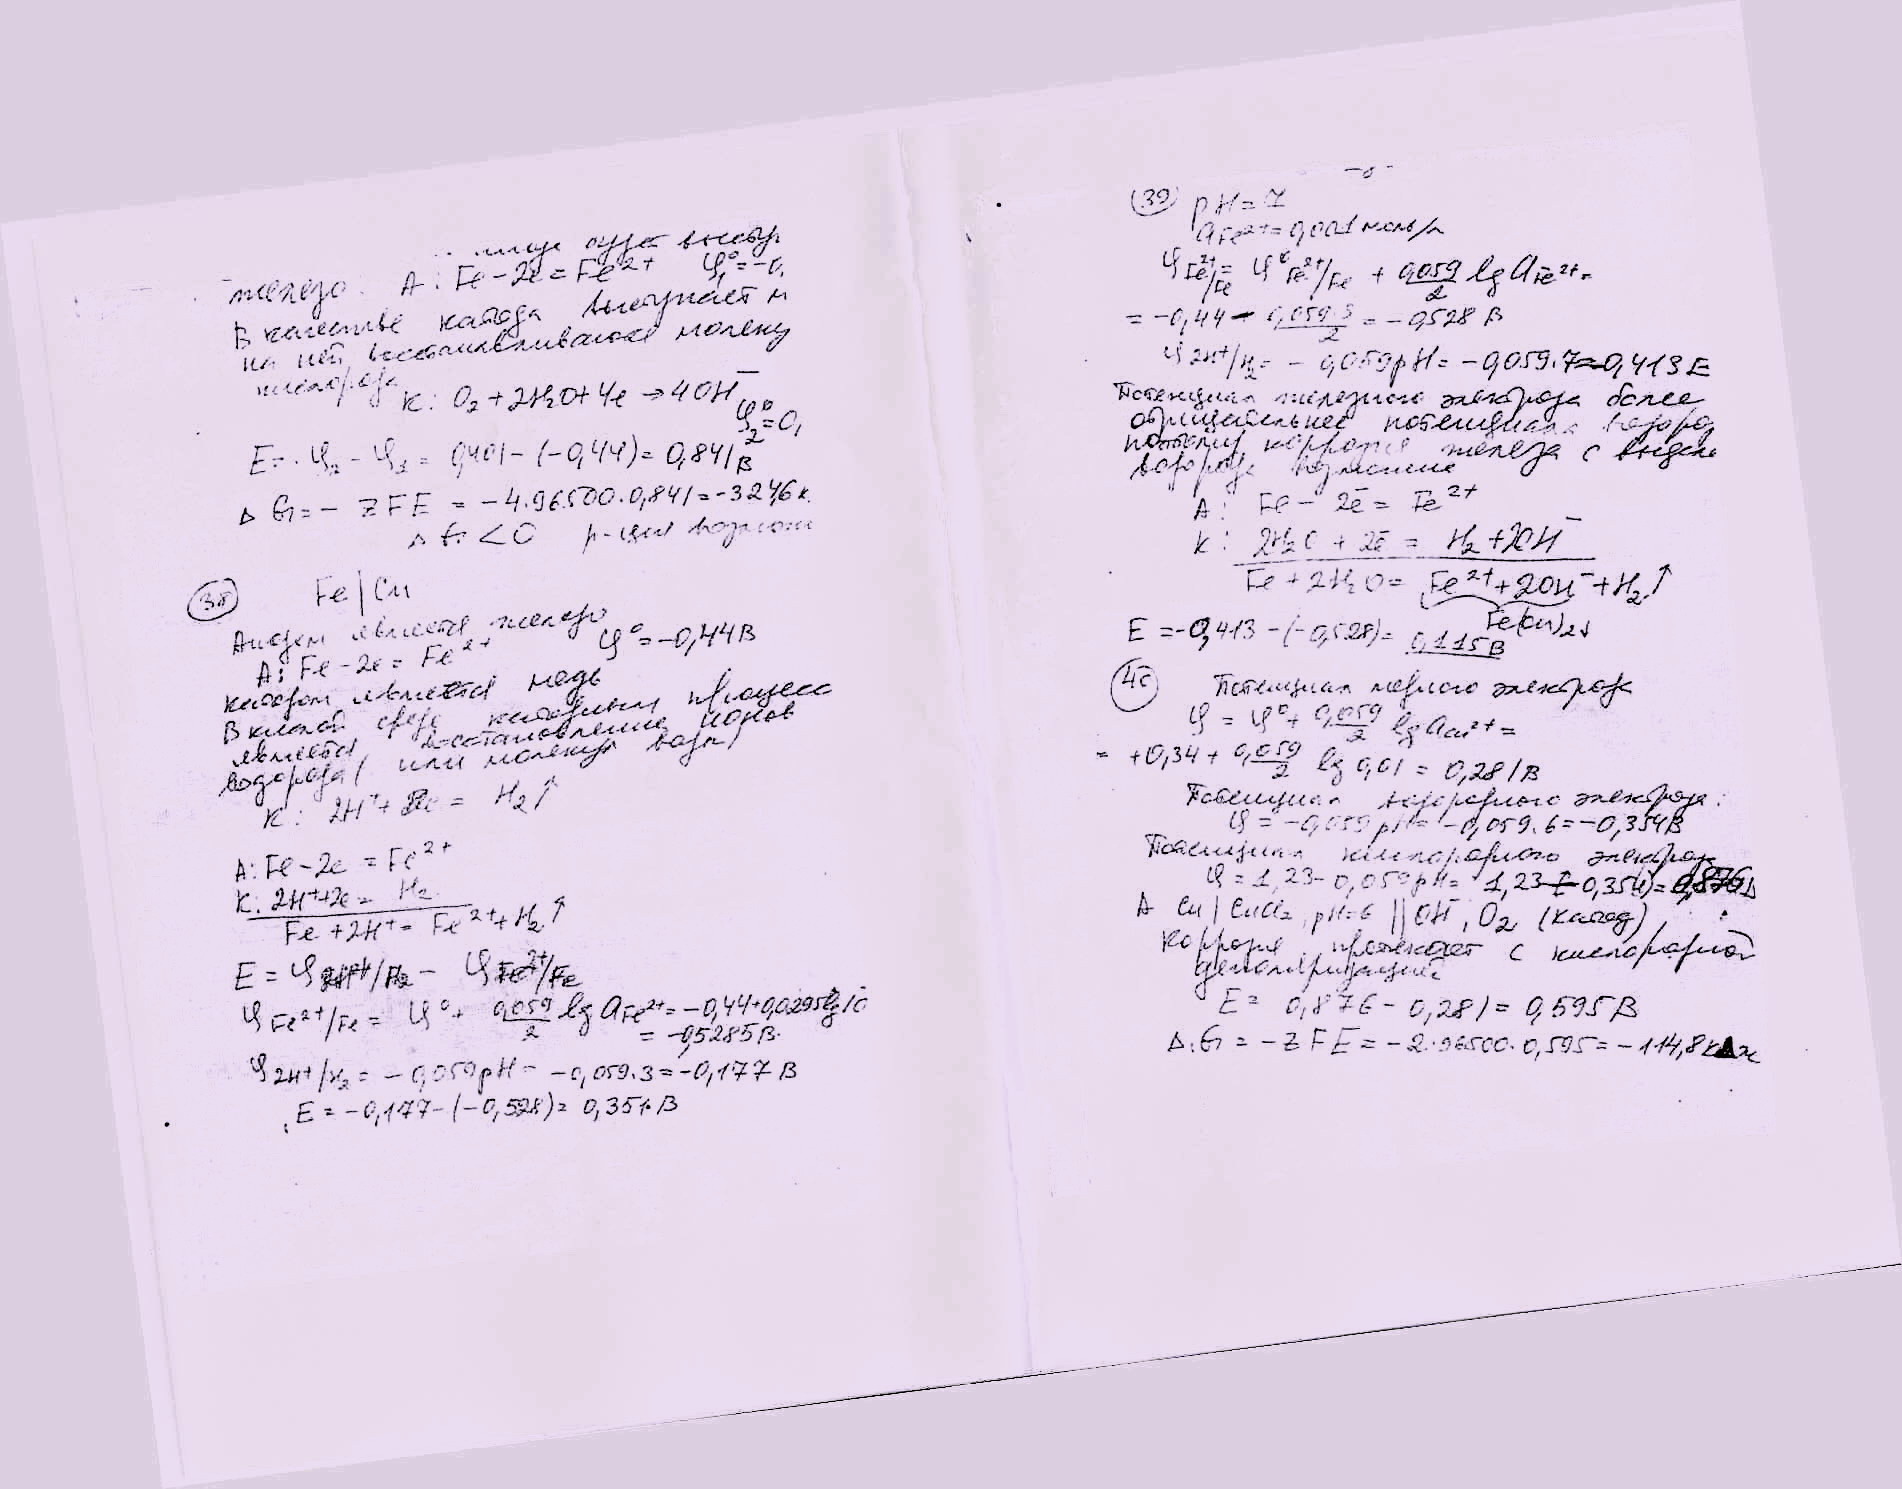 будет выступ
железо. А: Fe - 2e = Fe²⁺ φ₁⁰ = -0,
В качестве катода выступает м
на ней восстанавливаются молеку
кислорода
К: O₂ + 2H₂O + 4e → 4OH⁻
φ₂⁰ = 0,
E = φ₂ - φ₁ = 0,401 - (-0,44) = 0,841 В
ΔG = - zFE = -4·96500·0,841 = -324,6 к
ΔG < 0 р-ция возмож
38 Fe | Cu
Анодом является железо
А: Fe - 2e = Fe²⁺ φ⁰ = -0,44 В
катодом является медь
В кислой среде катодным процессом
является восстановление ионов
водорода (или молекул воды)
К: 2H⁺ + 2e = H₂↑
А: Fe - 2e = Fe²⁺
К: 2H⁺ + 2e = H₂
Fe + 2H⁺ = Fe²⁺ + H₂↑
E = φ 2H⁺/H₂ - φ Fe²⁺/Fe
φ Fe²⁺/Fe = φ⁰ + 0,059/2 lg a Fe²⁺ = -0,44 + 0,0295 lg 10
= -0,5285 В.
φ 2H⁺/H₂ = -0,059 pH = -0,059·3 = -0,177 В
E = -0,177 - (-0,528) = 0,351 В
39 pH = 7
a Fe²⁺ = 0,001 моль/л
φ Fe²⁺/Fe = φ⁰ Fe²⁺/Fe + 0,059/2 lg a Fe²⁺ =
= -0,44 - 0,059·3/2 = -0,528 В
φ 2H⁺/H₂ = - 0,059 pH = -0,059·7 = -0,413 В
Потенциал железного электрода более
отрицателен потенциала водород
поэтому коррозия железа с выделе
водорода возможна
А: Fe - 2e⁻ = Fe²⁺
К: 2H₂O + 2e⁻ = H₂ + 2OH⁻
Fe + 2H₂O = Fe²⁺ + 2OH⁻ + H₂↑
Fe(OH)₂↓
E = -0,413 - (-0,528) = 0,115 В
40 Потенциал медного электрода
φ = φ⁰ + 0,059/2 lg a Cu²⁺ =
= +0,34 + 0,059/2 lg 0,01 = 0,281 В
Потенциал водородного электрода:
φ = -0,059 pH = -0,059·6 = -0,354 В
Потенциал кислородного электрода
φ = 1,23 - 0,059 pH = 1,23 - 0,354) = 0,876 В
А Cu | CuCl₂, pH=6 || OH⁻, O₂ (катод)
Коррозия протекает с кислородной
деполяризацией
E = 0,876 - 0,281 = 0,595 В
ΔG = -zFE = -2·96500·0,595 = -114,8 кДж